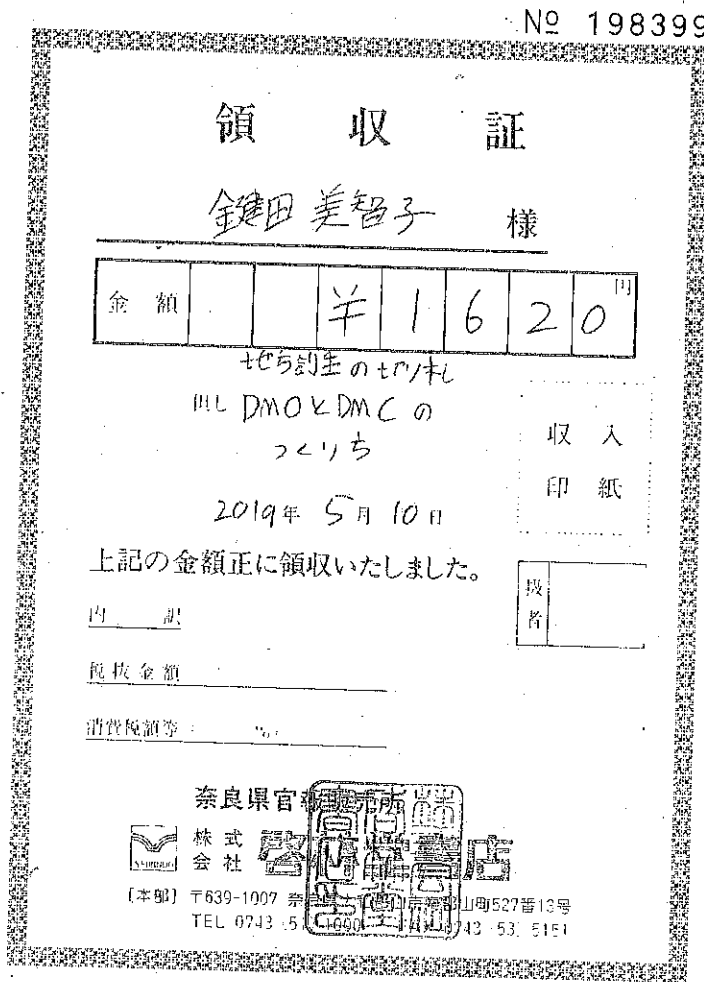 № 198399
領収証
鍵田 美智子 様
金額 ¥1620 円
地方創生の切り札
但し DMOとDMCの
つくり方
収入
印紙
2019年 5月 10日
上記の金額正に領収いたしました。
扱者
内訳
税抜金額
消費税額等 %
奈良県官報販売所
株式会社 啓林堂書店
〔本部〕 〒639-1007 奈良県 南郡山町527番13号
TEL 0743 51 1000 0743 53 5151